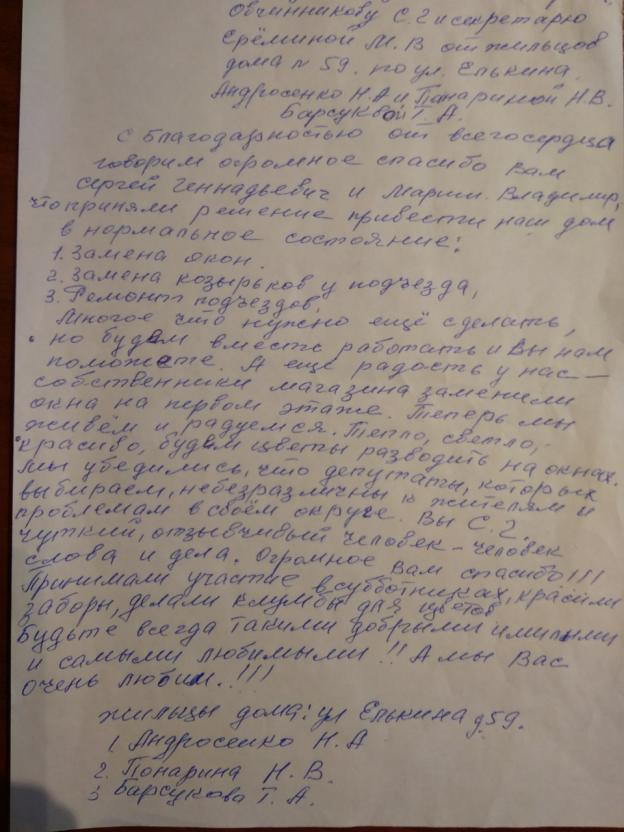 Овчинникову С.Г и секретарю
Ерёминой М.В от жильцов
дома № 59. по ул. Елькина.
Андросенко Н.А и Понариной Н.В.
Барсуковой Т.А.
С благодарностью от всего сердца
говорим огромное спасибо Вам
Сергей Геннадьевич и Марии. Владимир,
что приняли решение привести наш дом
в нормальное состояние:
1. Замена окон.
2. Замена козырьков у подъезда,
3. Ремонт подъездов.
Многое что нужно ещё сделать,
но будем вместе работать и Вы нам
поможете. А ещё радость у нас —
собственники магазина заменили
окна на первом этаже. Теперь мы
живём и радуемся. Тепло, светло,
красиво, будем цветы разводить на окнах.
Мы убедились, что депутаты, которых
выбираем, небезразличны к жителям и
проблемам в своём округе. Вы С.Г.
чуткий, отзывчивый человек - человек
слова и дела. Огромное Вам спасибо!!!
Принимали участие в субботниках, красили
заборы, делали клумбы для цветов
Будьте всегда такими добрыми и милыми
и самыми любимыми!! А мы Вас
очень любим.!!!
жильцы дома: ул Елькина д.59.
1. Андросенко Н.А
2. Понарина Н.В.
3 Барсукова Т.А.